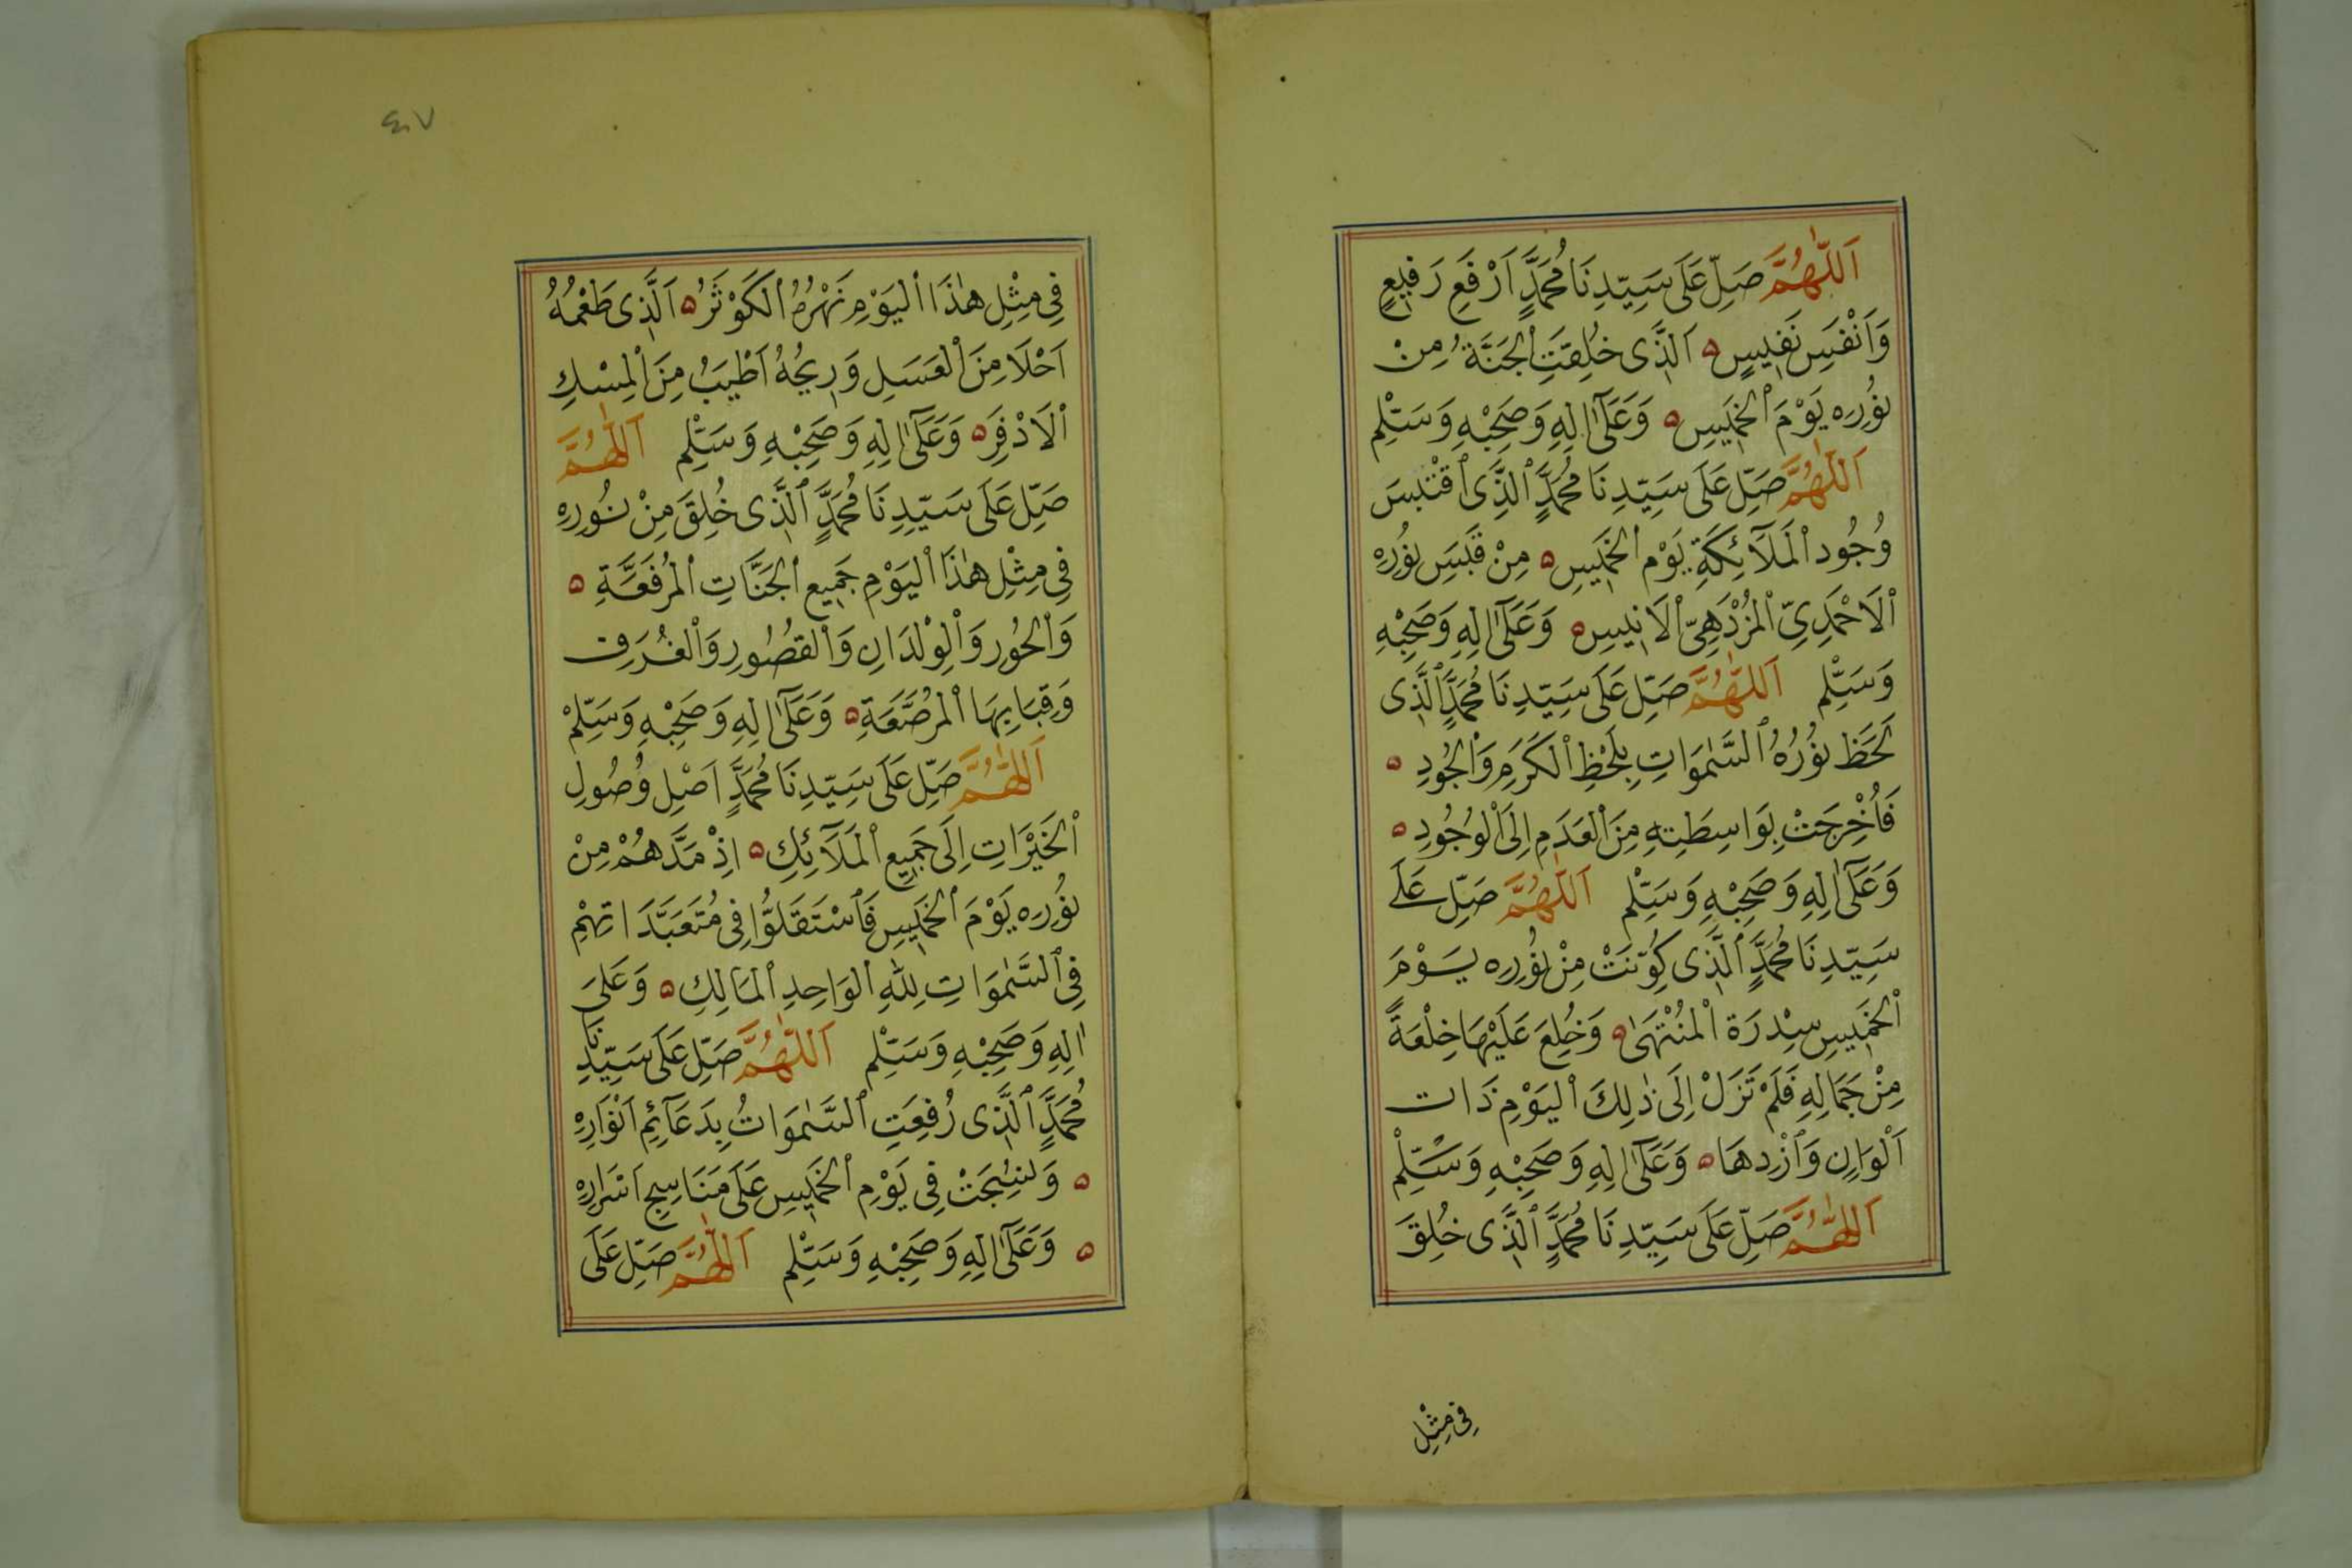 اَللّٰهُمَّ صَلِّ عَلَى سَيِّدِنَا مُحَمَّدٍ اَرْفَعِ رَفِيعٍ
وَاَنْفَسِ نَفِيسٍ ۞ اَلَّذِى خُلِقَتِ ٱلْجَنَّةُ مِنْ
نُورِهِ يَوْمَ ٱلْخَمِيسِ ۞ وَعَلَىٰٓ اٰلِهِ وَصَحْبِهِ وَسَلِّمْ
اَللّٰهُمَّ صَلِّ عَلَى سَيِّدِنَا مُحَمَّدٍ ٱلَّذِى ٱقْتَبَسَ
وُجُود ٱلْمَلَآئِكَةِ يَوْم ٱلْخَمِيسِ ۞ مِنْ قَبَسِ نُورِهِ
ٱلْاَحْمَدِيِّ ٱلْمُزْدَهِيِّ ٱلْاَنِيسِ ۞ وَعَلَىٰٓ اٰلِهِ وَصَحْبِهِ
وَسَلِّمْ اَللّٰهُمَّ صَلِّ عَلَى سَيِّدِنَا مُحَمَّدٍ ٱلَّذِى
لَحَظَ نُورُهُ ٱلسَّمٰوَاتِ بِلَحْظِ ٱلْكَرَمِ وَٱلْجُودِ ۞
فَاُخْرِجَتْ بِوَاسِطَتِهِ مِنَ ٱلْعَدَمِ اِلَى ٱلْوُجُودِ ۞
وَعَلَىٰٓ اٰلِهِ وَصَحْبِهِ وَسَلِّمْ اَللّٰهُمَّ صَلِّ عَلَى
سَيِّدِنَا مُحَمَّدٍ ٱلَّذِى كُوِّنَتْ مِنْ نُورِهِ يَوْمَ
ٱلْخَمِيسِ سِدْرَة ٱلْمُنْتَهَىٰ ۞ وَخُلِعَ عَلَيْهَا خِلْعَةً
مِنْ جَمَالِهِ فَلَمْ تَزَلْ اِلَى ذٰلِكَ ٱلْيَوْمِ ذَات
اَلْوَانٍ وَٱزْدِهَا ۞ وَعَلَىٰٓ اٰلِهِ وَصَحْبِهِ وَسَلِّمْ
اَللّٰهُمَّ صَلِّ عَلَى سَيِّدِنَا مُحَمَّدٍ ٱلَّذِى خُلِقَ
فِى مِثْلِ
٤٠٧
فِى مِثْلِ هٰذَا ٱلْيَوْمِ نَهْرُهُ ٱلْكَوْثَرُ ۞ اَلَّذِى طَعْمُهُ
اَحْلَا مِنَ ٱلْعَسَلِ وَرِيحُهُ اَطْيَبُ مِنَ ٱلْمِسْكِ
ٱلْاَذْفَرِ ۞ وَعَلَىٰٓ اٰلِهِ وَصَحْبِهِ وَسَلِّمْ اَللّٰهُمَّ
صَلِّ عَلَى سَيِّدِنَا مُحَمَّدٍ ٱلَّذِى خُلِقَ مِنْ نُورِهِ
فِى مِثْلِ هٰذَا ٱلْيَوْمِ جَمِيع ٱلْجَنَّاتِ ٱلْمُرَفَّعَةِ ۞
وَٱلْحُورِ وَٱلْوِلْدَانِ وَٱلْقُصُورِ وَٱلْغُرَفِ
وَقِبَابِهَا ٱلْمُرَصَّعَةِ ۞ وَعَلَىٰٓ اٰلِهِ وَصَحْبِهِ وَسَلِّمْ
اَللّٰهُمَّ صَلِّ عَلَى سَيِّدِنَا مُحَمَّدٍ اَصْلِ وُصُولِ
ٱلْخَيْرَاتِ اِلَى جَمِيع ٱلْمَلَآئِكِ ۞ اِذْ مَدَّهُمْ مِنْ
نُورِهِ يَوْمَ ٱلْخَمِيسِ فَٱسْتَقَلُّوا فِى مُتَعَبَّدَاتِهِمْ
فِى ٱلسَّمٰوَاتِ لِلّٰهِ ٱلْوَاحِدِ ٱلْمَالِكِ ۞ وَعَلَى
اٰلِهِ وَصَحْبِهِ وَسَلِّمْ اَللّٰهُمَّ صَلِّ عَلَى سَيِّدِنَا
مُحَمَّدٍ ٱلَّذِى رُفِعَتِ ٱلسَّمٰوَاتُ بِدَعَآئِمِ اَنْوَارِهِ
۞ وَنُسِجَتْ فِى يَوْمِ ٱلْخَمِيسِ عَلَى مَنَاسِجِ اَسْرَارِهِ
۞ وَعَلَىٰٓ اٰلِهِ وَصَحْبِهِ وَسَلِّمْ اَللّٰهُمَّ صَلِّ عَلَى